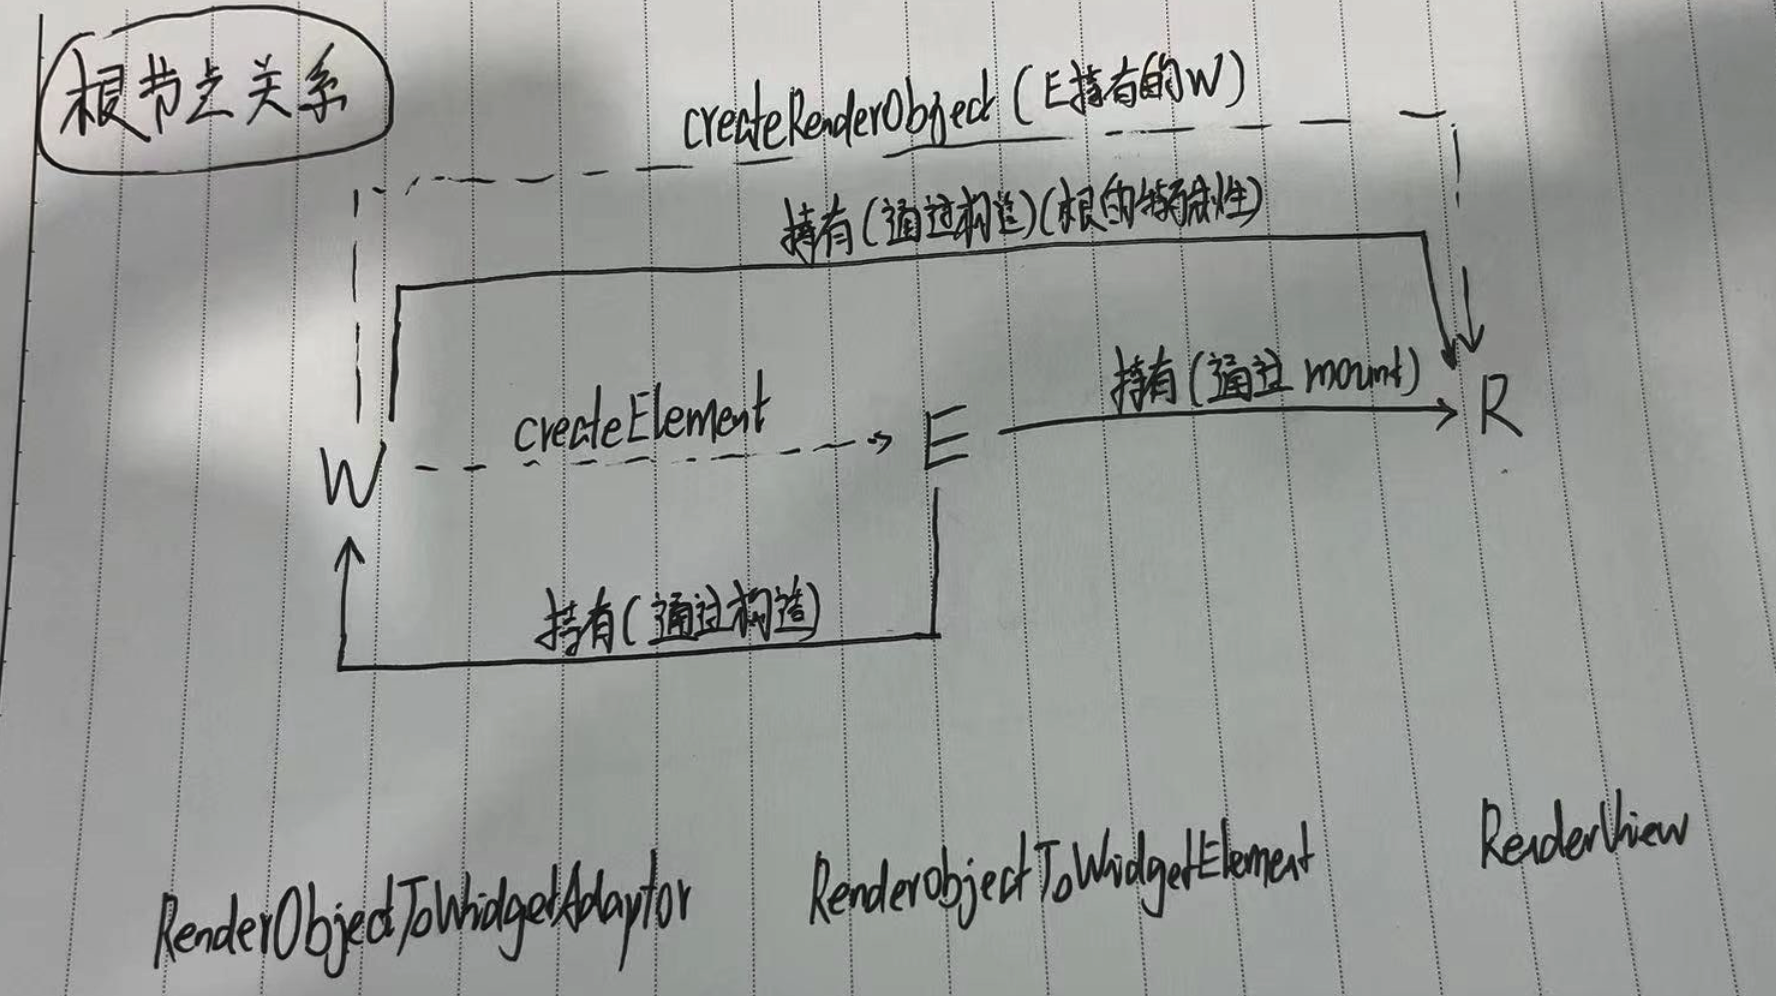 根节点关系
createRenderObject (E持有的W)
持有(通过构造)(根的特殊性)
持有(通过 mount)
createElement
W
E
R
持有(通过构造)
RenderObjectToWhidgetAdaptor
RenderobjectToWhidgetElement
RenderView